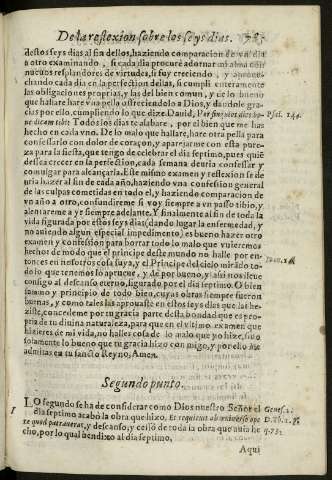 De la reflexion sobre los seys dias. 783
destos seys dias al fin dellos, haziendo comparacion de vn dia
a otro examinando, si cada dia procurè adornar mi alma con
nueuos resplandores de virtudes, si fuy creciendo, y aproue-
chando cada dia en la perfection dellas, si cumpli enteramente
las obligaciones proprias, y las del bien comun, y de lo bueno
que hallare hare vna pella ofreciendolo a Dios, y dandole gra-
cias por ello, cumpliendo lo que dize Dauid, Per singulos dies be- Psal. 144.
ne dicam tibi. Todos los dias te alabare, por el bien que me has
hecho en cada vno. De lo malo que hallare, hare otra pella para
confessarlo con dolor de coraçon, y aparejarme con esta pure-
za para la fiesta, que tengo de celebrar el dia septimo, pues quiè
dessea crecer en la perfection, cada semana deuria confessar y
comulgar para alcançarla. Este mismo examen y reflexion se de
uria hazer al fin de cada año, haziendo vna confession general
de las culpas cometidas en todo el, y haziendo comparacion de
vn año a otro, confundireme si voy siempre a vn passo tibio, y
alentareme a yr siempre adelante. Y finalmente al fin de toda la
vida figurada por estos seys dias (dando lugar la enfermedad, y
no auiendo algun especial impedimento) es bueno hazer otro
examen y confession para borrar todo lo malo que vuieremos
hecho: de modo que el principe deste mundo no halle por en-
tonces en nosotros cosa suya, y el Principe del cielo mirãdo to- Ioan. 14.
do lo que tenemos lo aprueue, y de por bueno, y assi nos lleue
consigo al descanso eterno, figurado por el dia septimo. O bien
summo y principio de todo bien, cuyas obras siempre fueron
buenas, y como tales las aprouaste en estos seys dias que las he-
ziste, concedeme por tu gracia parte desta bondad que es pro-
pria de tu diuina naturaleza, para que en el vltimo examen que
hizieres de mi vida, no halles cosa de lo malo que yo hize, sino
solamente lo bueno que tu gracia hizo conmigo, y por ello me
admitas en tu sancto Reyno, Amen.
Segundo punto.
1 LO segundo se ha de considerar como Dios nuestro Señor el Genes. 2.
dia septimo acabò la obra que hizo. Et requieuit ab vniuerso ope D. Th. 1. p.
re quod patrauerat, y descansò, y cessò de toda la obra que auia he q. 73.
cho, por lo qual bendixo al dia septimo.
Aqui